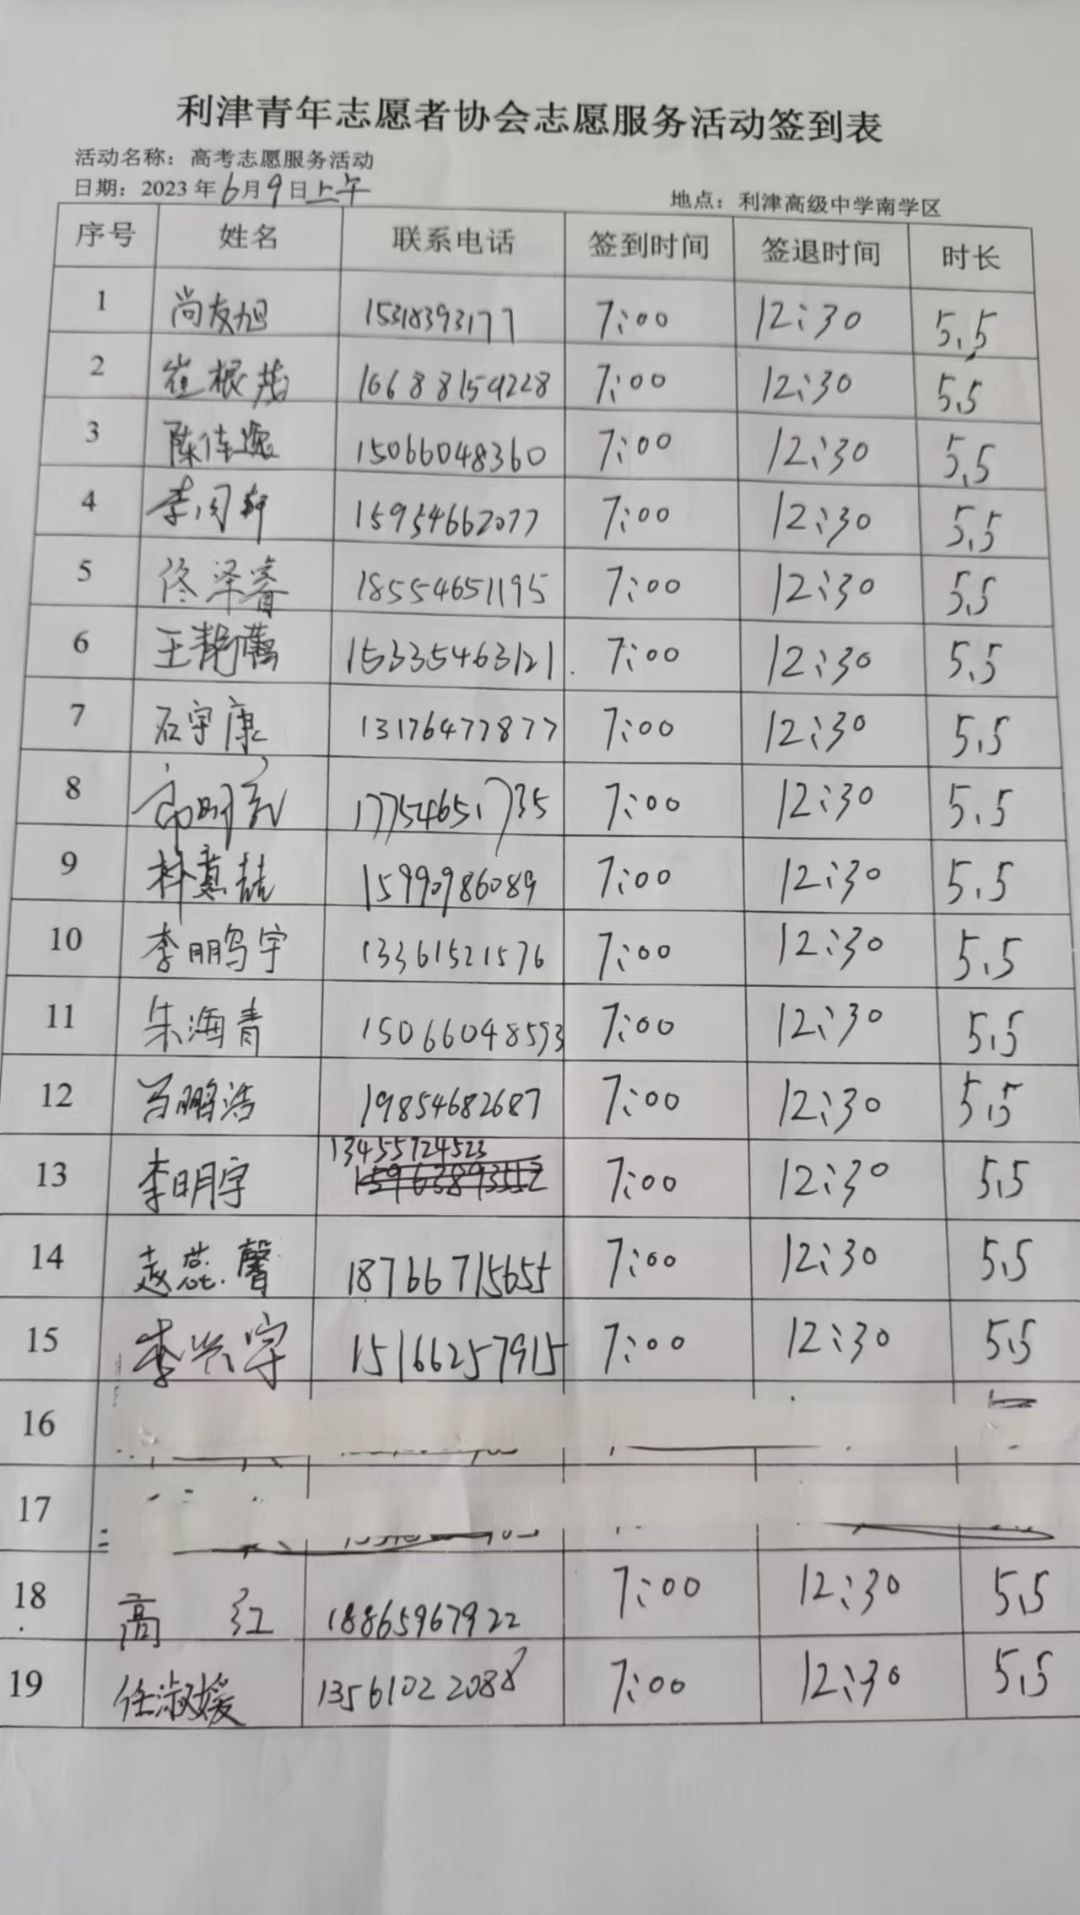 利津青年志愿者协会志愿服务活动签到表
活动名称：高考志愿服务活动
日期：2023年6月9日上午
地点：利津高级中学南学区
序号 姓名 联系电话 签到时间 签退时间 时长
1 尚友旭 15318393177 7:00 12:30 5.5
2 崔根茂 16688159228 7:00 12:30 5.5
3 陈佳逸 15066048360 7:00 12:30 5.5
4 李闰轩 15954662077 7:00 12:30 5.5
5 佟泽睿 18554651195 7:00 12:30 5.5
6 王艳 15335463121 7:00 12:30 5.5
7 石宇康 13176477877 7:00 12:30 5.5
8 17754651735 7:00 12:30 5.5
9 15990986089 7:00 12:30 5.5
10 李鹏宇 13361521576 7:00 12:30 5.5
11 朱海青 15066048593 7:00 12:30 5.5
12 鹏浩 19854682687 7:00 12:30 5.5
13 李明宇 13455724523 7:00 12:30 5.5
14 赵蕊馨 18766715655 7:00 12:30 5.5
15 李兴宇 15166257915 7:00 12:30 5.5
16
17
18 高红 18865967922 7:00 12:30 5.5
19 任淑媛 13561022088 7:00 12:30 5.5